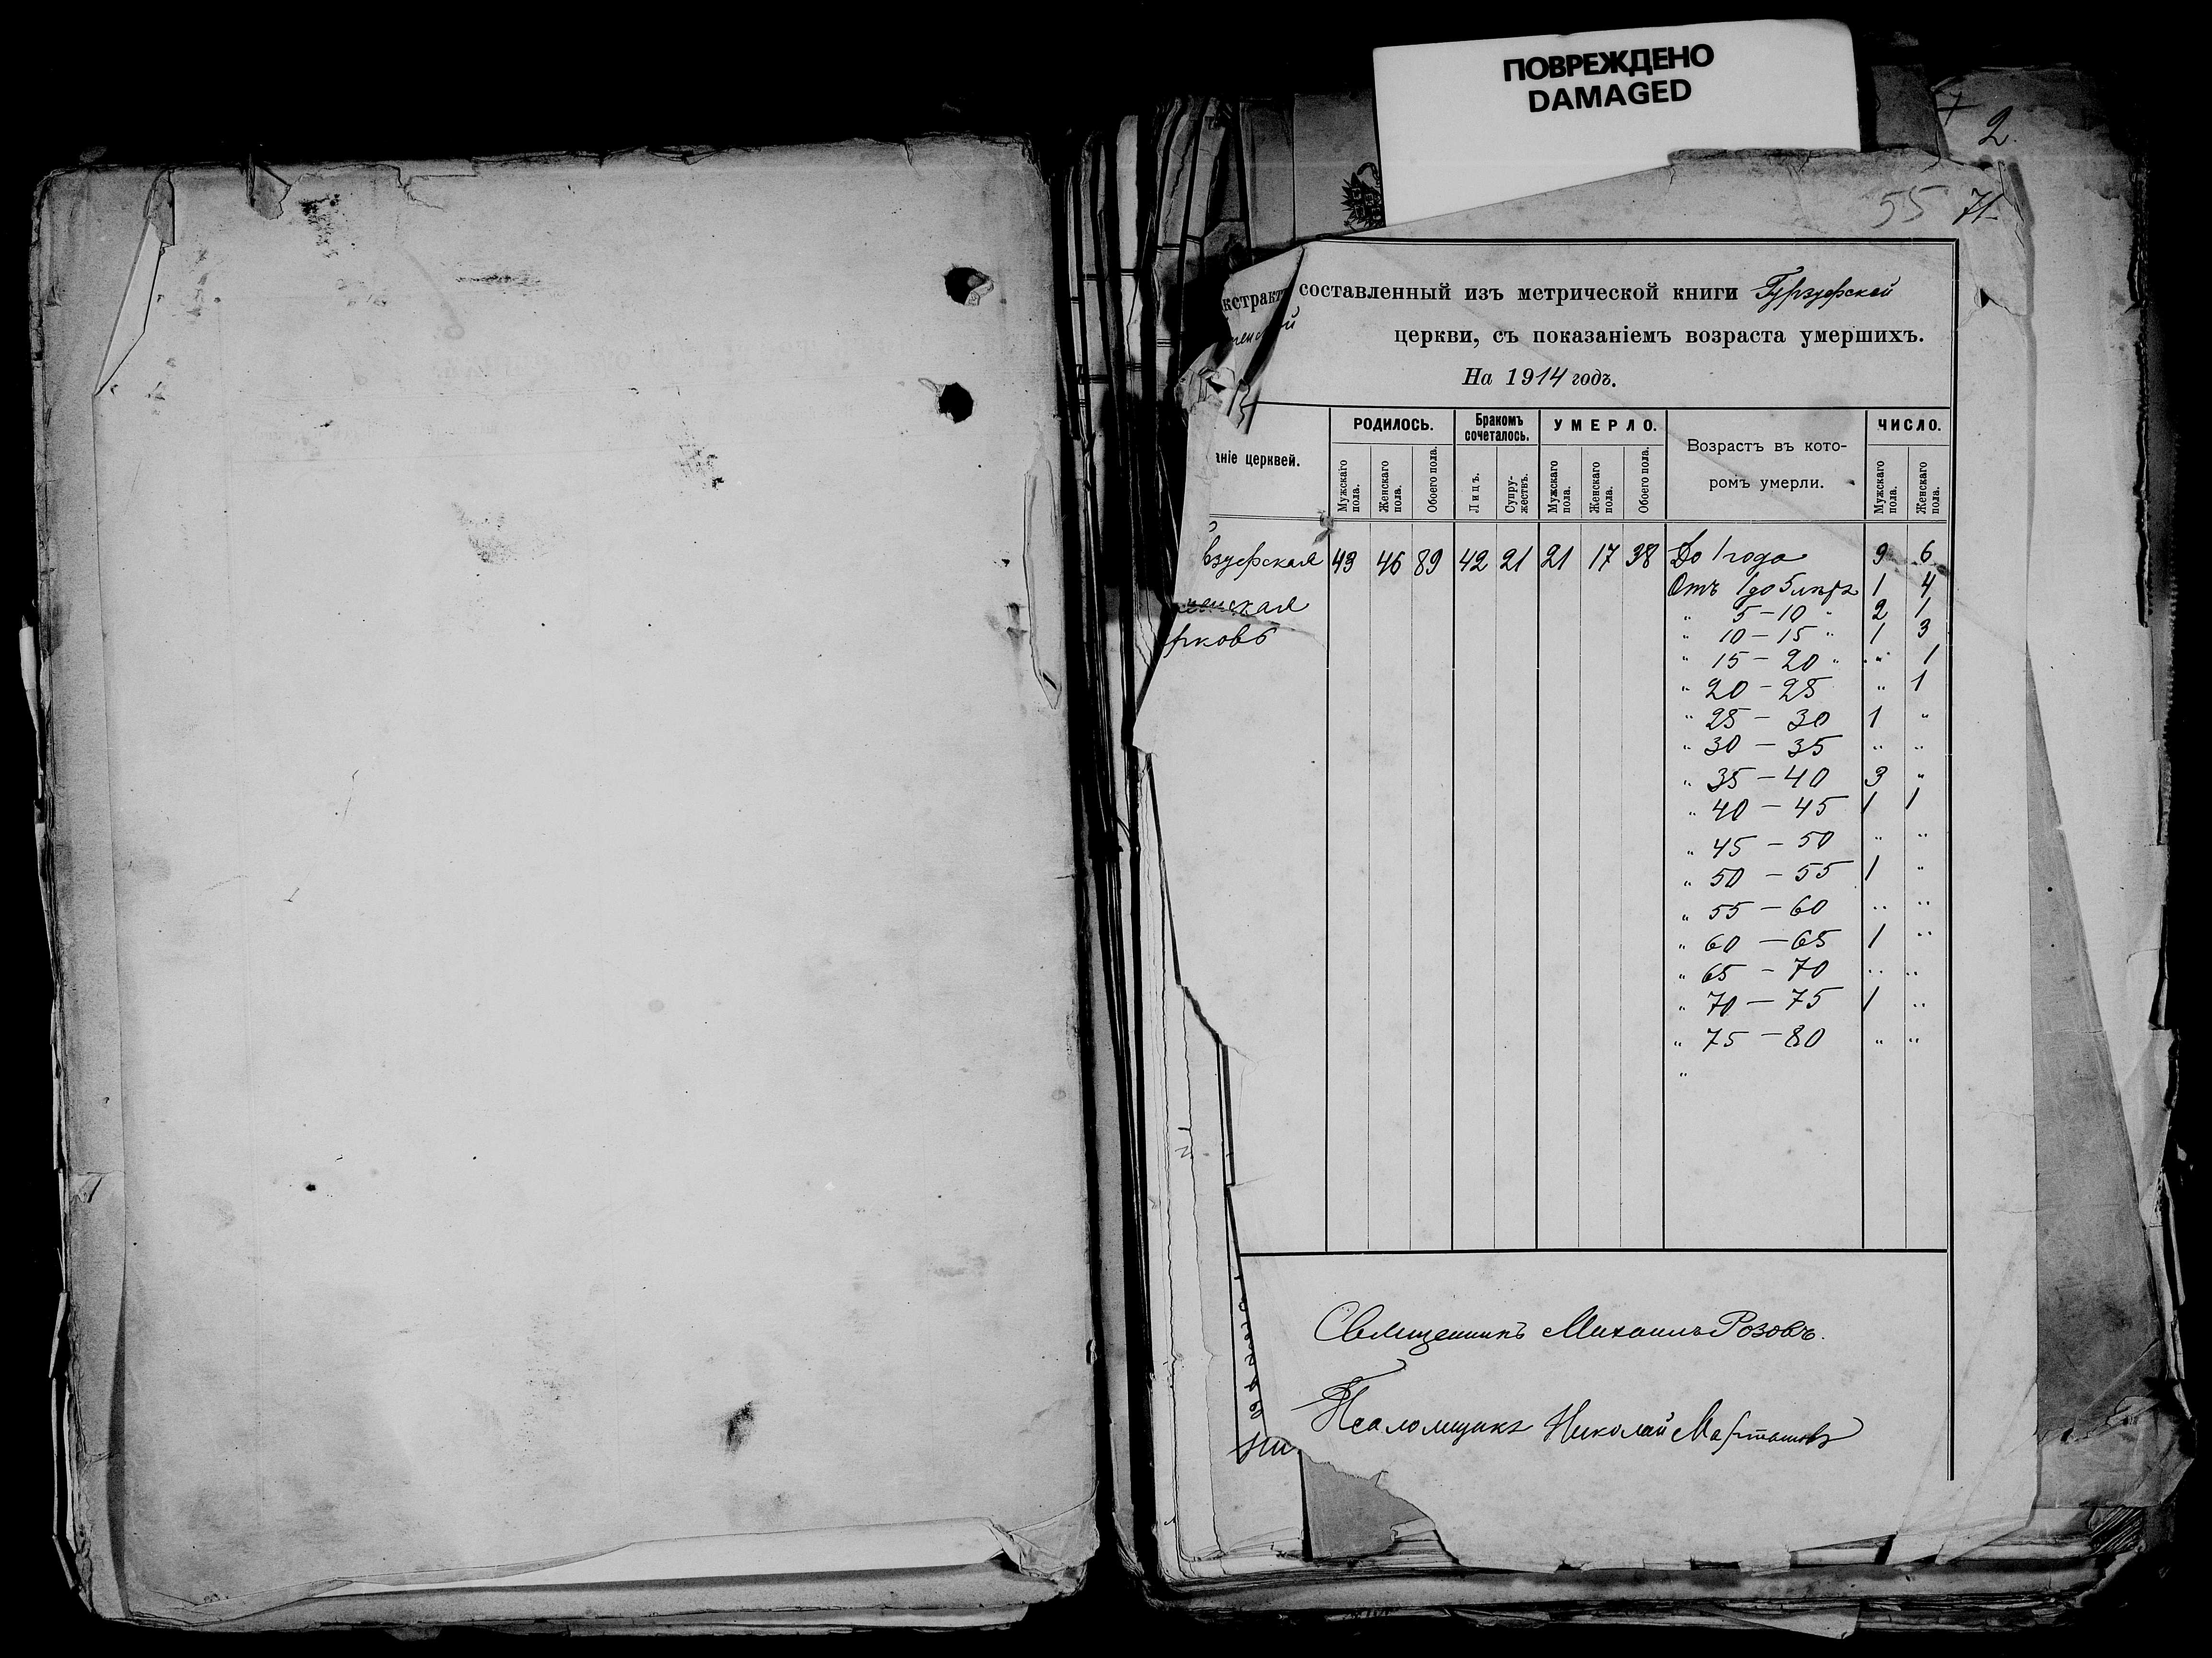 ПОВРЕЖДЕНО
DAMAGED
2.
55 71
кстрактъ составленный изъ метрической книги Гурзуфской
церкви, съ показаніемъ возраста умершихъ.
На 1914 годъ.
аніе церквей.
РОДИЛОСЬ.
Бракомъ сочеталось.
УМЕРЛО.
Возрастъ въ которомъ умерли.
ЧИСЛО.
Мужскаго пола.
Женскаго пола.
Обоего пола.
Лицъ.
Супружествъ.
Мужскаго пола.
Женскаго пола.
Обоего пола.
Мужскаго пола.
Женскаго пола.
рзуфская 43 46 89 42 21 21 17 38 До 1 года 9 6
Отъ 1 до 5 лѣтъ 1 4
пенская
" 5 – 10 " 2 1
рковь
" 10 – 15 " 1 3
" 15 – 20 " " 1
" 20 – 25 " 1
" 25 – 30 1 "
" 30 – 35 " "
" 35 – 40 3 "
" 40 – 45 1 1
" 45 – 50 " "
" 50 – 55 1 "
" 55 – 60 " "
" 60 – 65 1 "
" 65 – 70 " "
" 70 – 75 1 "
" 75 – 80 " "
"
Священникъ Михаилъ Розовъ.
Псаломщикъ Николай Марташовъ